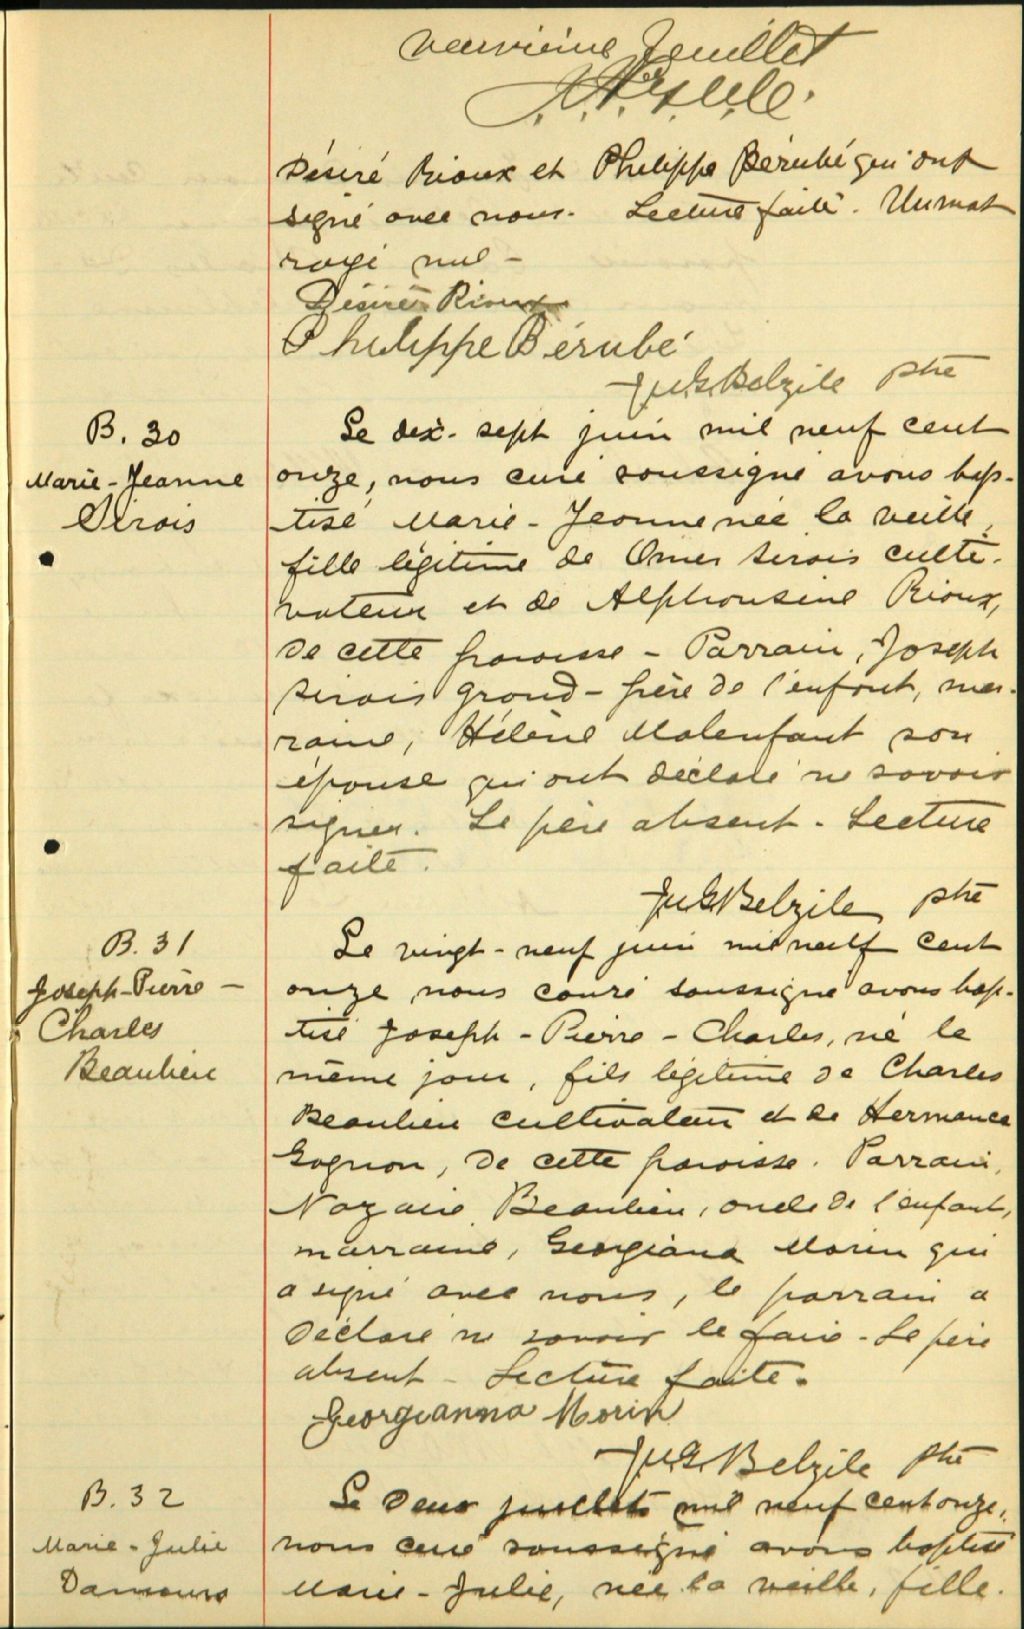 neuvième feuillet
Désiré Rioux et Philippe Bérubé qui ont
signé avec nous. Lecture faite. Un mot
rayé nul -
Désiré Rioux
Philippe Bérubé
J.G. Belzile ptre
B. 30
Marie-Jeanne
Sirois
Le dix-sept juin mil neuf cent
onze, nous curé soussigné avons bap-
tisé Marie-Jeanne née la veille,
fille légitime de Omer Sirois culti-
vateur et de Alphonsine Rioux,
de cette paroisse - Parrain, Joseph
Sirois grand-père de l'enfant, mar-
raine, Hélène Malenfant son
épouse qui ont déclaré ne savoir
signer. Le père absent. Lecture
faite.
J.G. Belzile ptre
B. 31
Joseph-Pierre-
Charles
Beaulieu
Le vingt-neuf juin mil neuf cent
onze nous curé soussigné avons bap-
tisé Joseph-Pierre-Charles, né le
même jour, fils légitime de Charles
Beaulieu cultivateur et de Hermance
Gagnon, de cette paroisse. Parrain,
Nazaire Beaulieu, oncle de l'enfant,
marraine, Georgiana Morin qui
a signé avec nous, le parrain a
déclaré ne savoir le faire - Le père
absent - Lecture faite.
Georgianna Morin
J.G. Belzile ptre
B. 32
Marie-Julie
Damours
Le deux juillet mil neuf cent onze,
nous curé soussigné avons baptisé
Marie-Julie, née la veille, fille